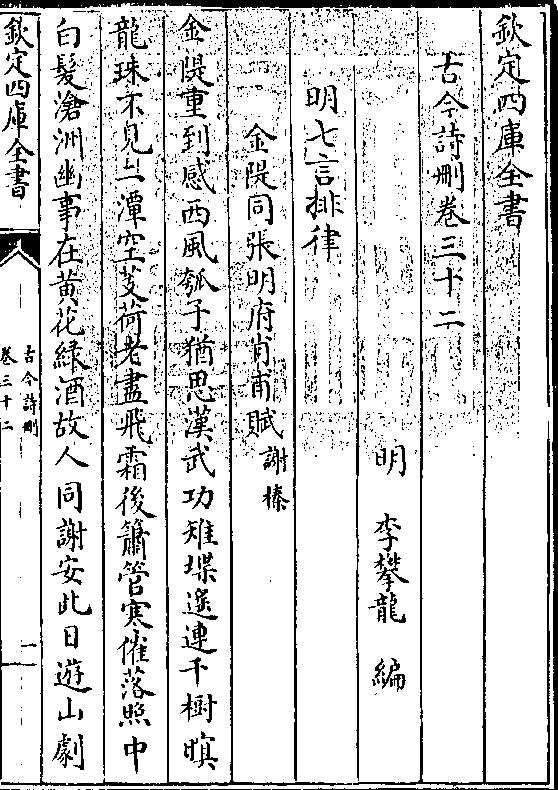 欽定四庫全書
古今詩刪卷三十二
明 李攀龍 編
明七言排律
金隄同張明府肖甫賦 謝榛
金隄重到感西風瓠子猶思漢武功雉堞遙連千樹暝
龍珠不見一潭空芰荷老盡飛霜後簫管寒催落照中
白髮滄洲幽事在黃花綠酒故人同謝安此日遊山劇
欽定四庫全書
古今詩刪
卷三十二
一